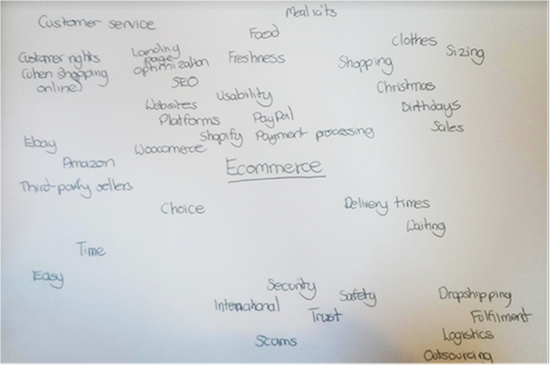 Meal kits
Customer service
Food
Clothes
Sizing
Customer rights
when shopping
online
Landing
page
optimization
SEO
Freshness
Shopping
Christmas
Birthdays
Sales
Websites
Usability
Platforms
PayPal
Shopify
Payment processing
Woocomerce
Ebay
Amazon
Third-party sellers
Ecommerce
Choice
Delivery times
Waiting
Time
Easy
Security
Safety
International
Trust
Scams
Dropshipping
Fulfilment
Logistics
Outsourcing